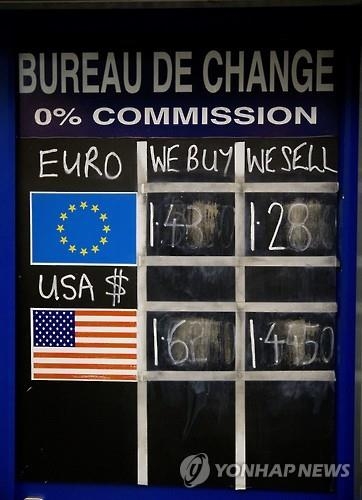 BUREAU DE CHANGE
0% COMMISSION
EURO WE BUY WE SELL
1.28
USA $
1.62 1.4450
YONHAP NEWS